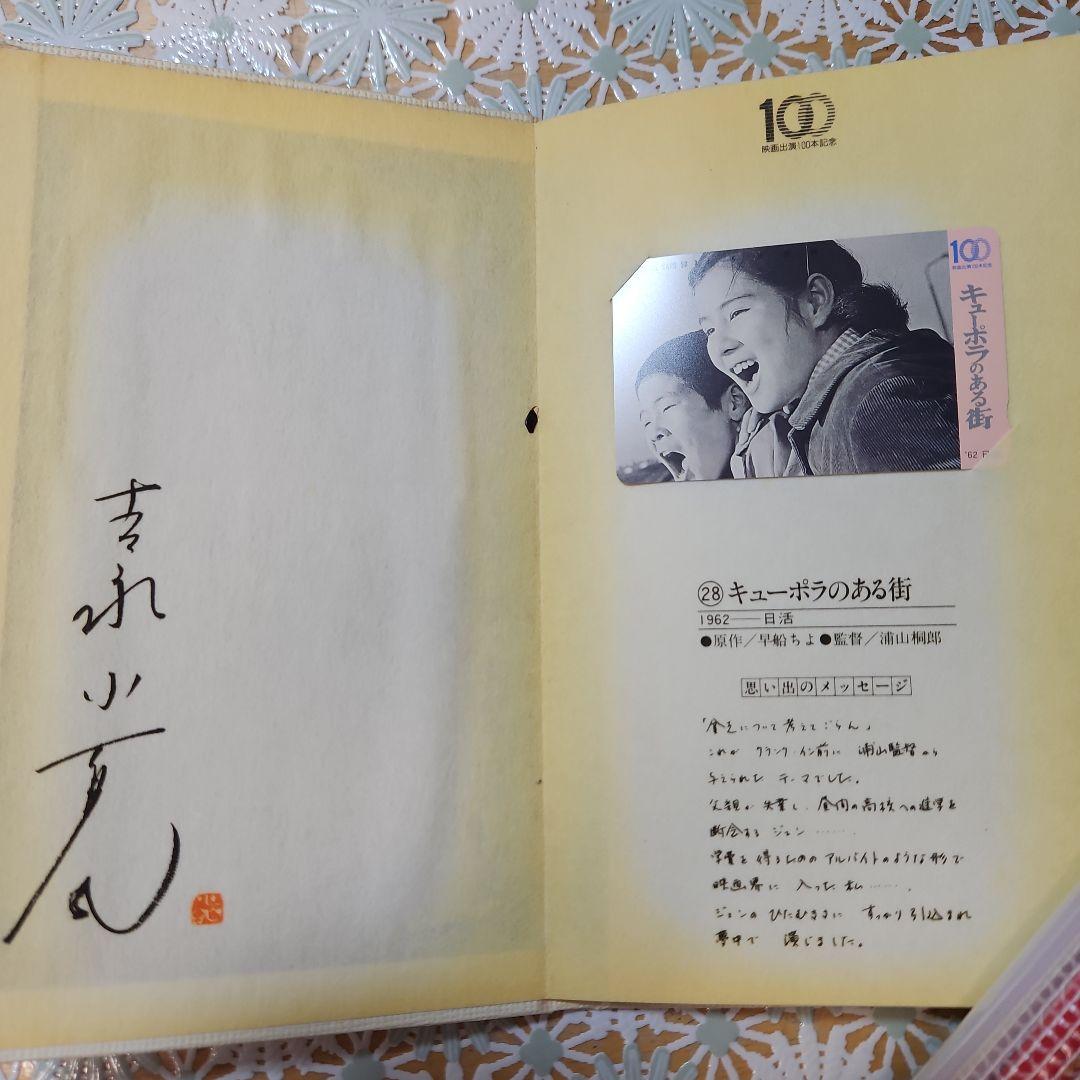 吉永小百合
100
映画出演100本記念
100
映画出演100本記念
キューポラのある街
'62
㉘キューポラのある街
1962——日活
●原作／早船ちよ●監督／浦山桐郎
思い出のメッセージ
「貧乏について考えてごらん」
これが クランク・イン前に 浦山監督から
与えられた テーマでした。
父親が 失業し、昼間の高校への進学を
断念する ジュン……。
学費を 得るための アルバイトのような形で
映画界に 入った 私……。
ジュンの ひたむきさに すっかり引込まれ
夢中で 演じました。